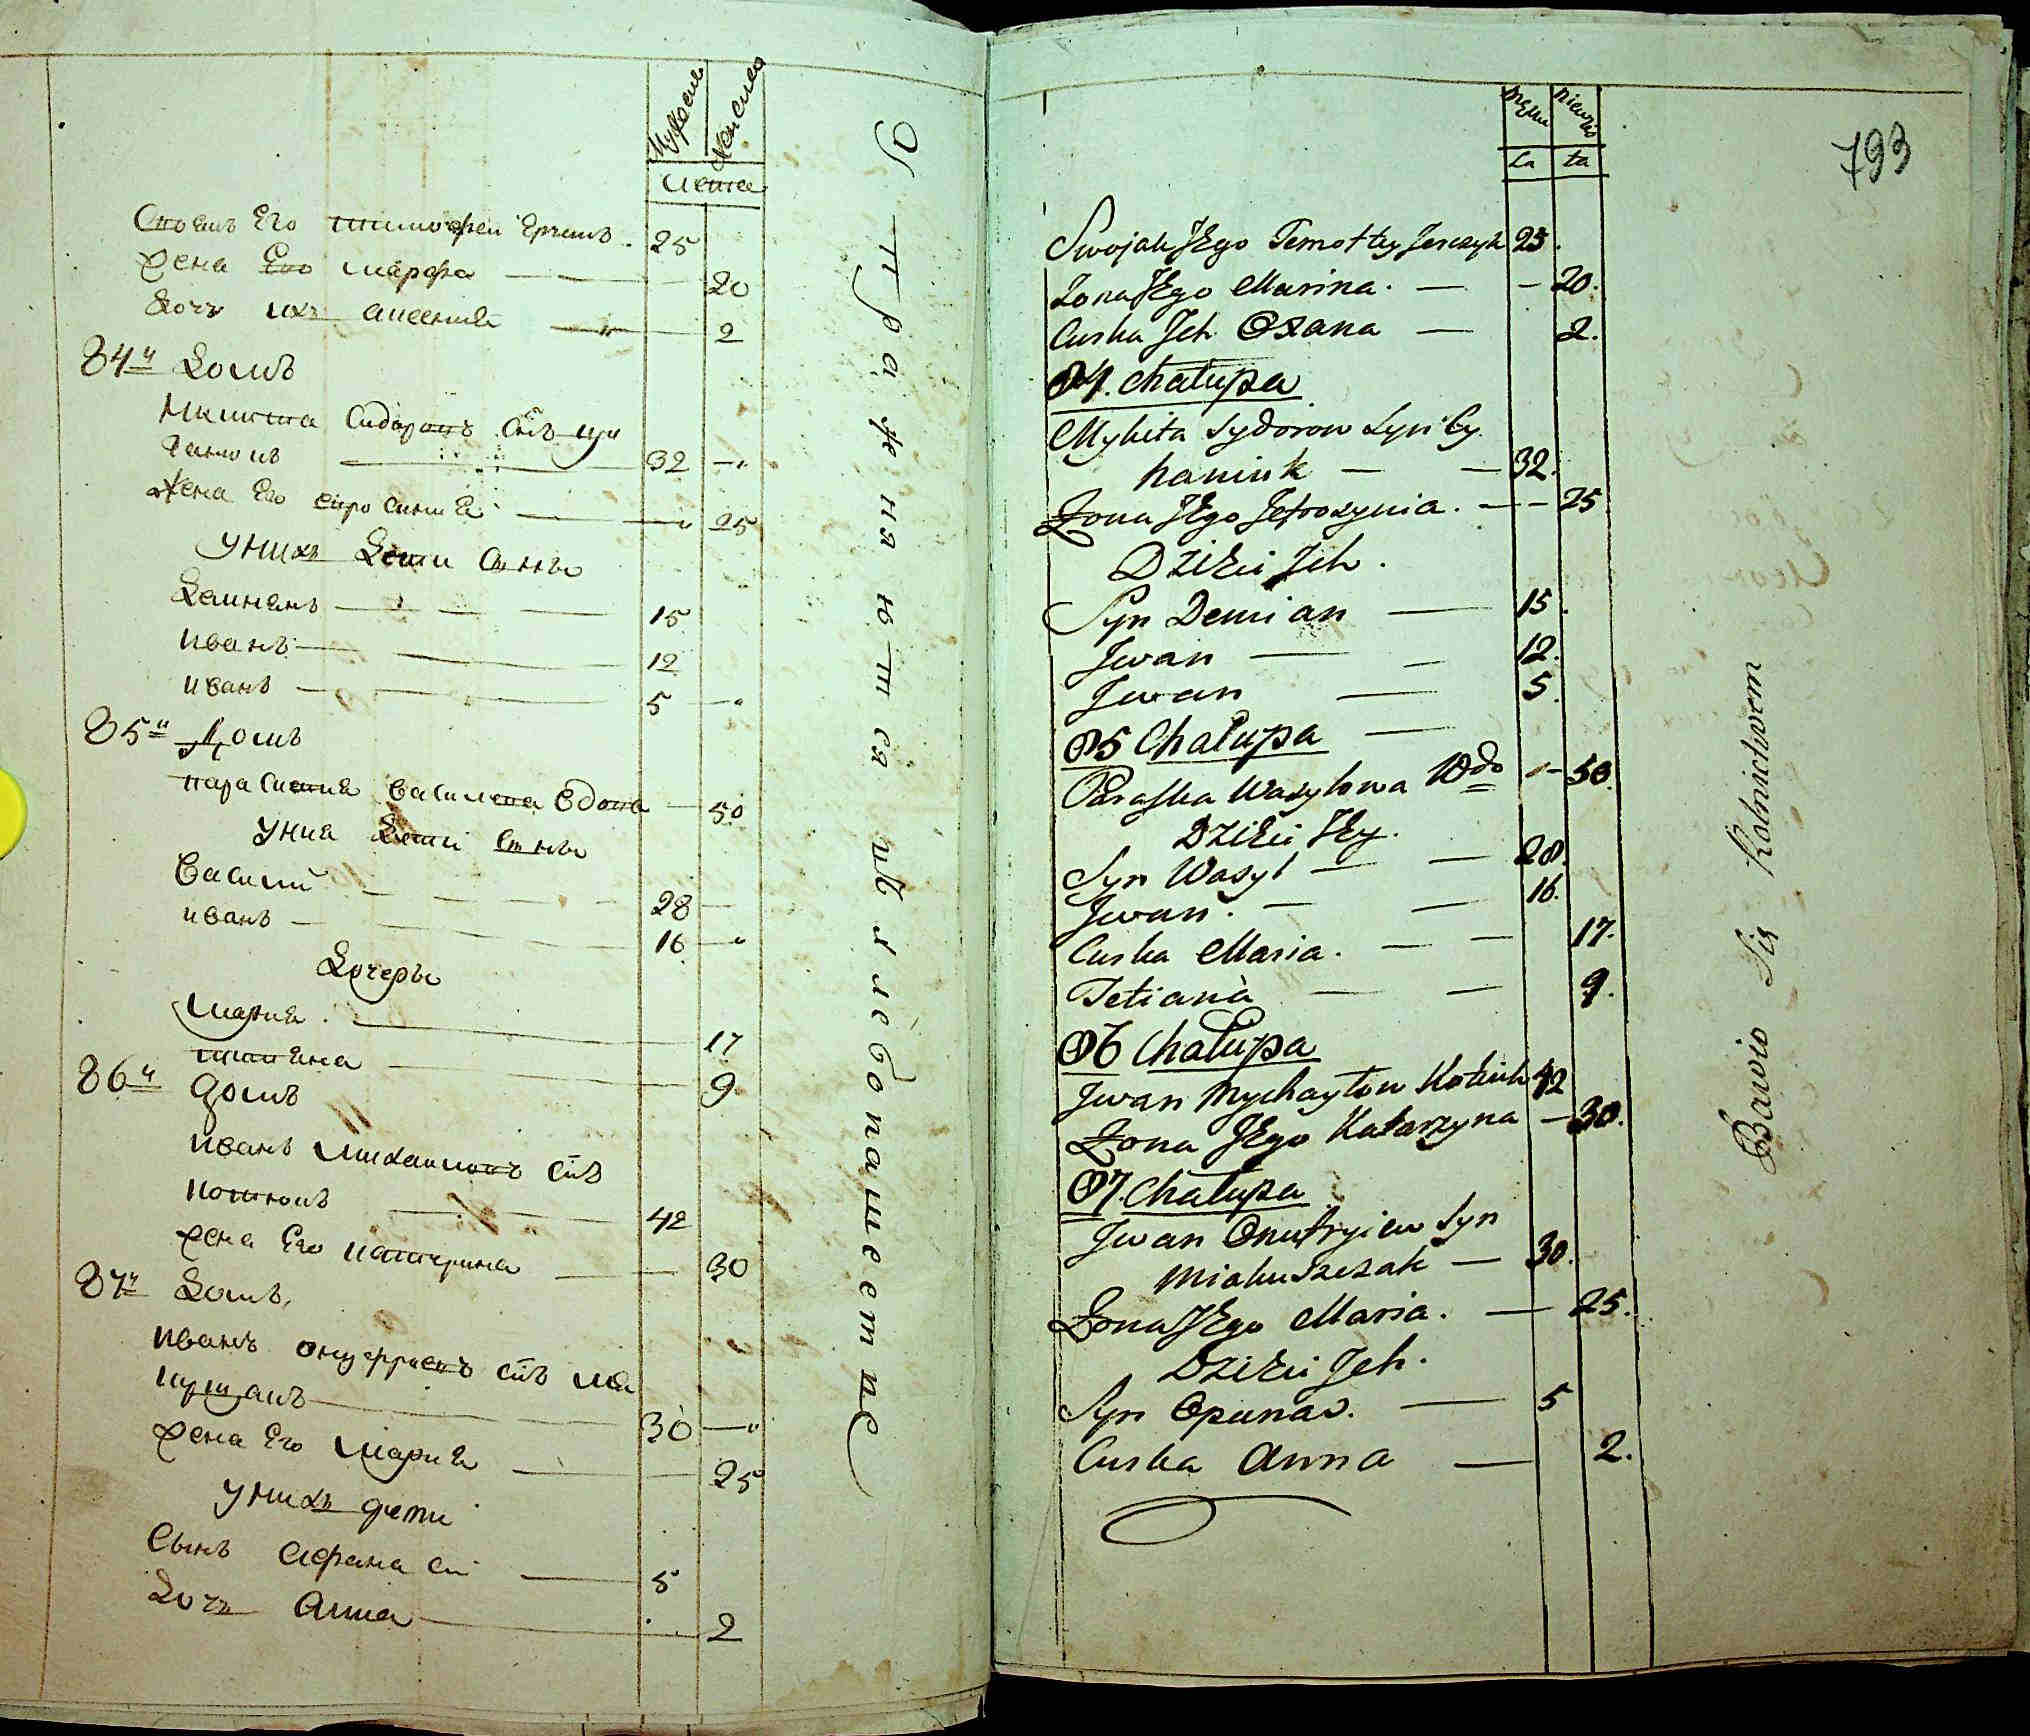 Мужеска Женска
Лета
Своякъ Его тимофеи 25
жена Его марфа 20
Дочь ихъ 2
84й Домъ
Микита Сидоровъ Снъ Цы
ганюкъ 32
жена Его 25
У нихъ Дети Сыны
Демиянъ 15
иванъ 12
иванъ 5
85й Домъ
параскевия василева вдова 50
У ние Дети Сыны
Василий 28
иванъ 16
Дочеры
Мария 17
татияна 9
86й домъ
иванъ михаиловъ снъ
котюкъ 42
жена Его катерина 30
87й Домъ
иванъ онуфриевъ снъ мя
жена Его Мария 25
У нихъ дети
Сынъ 5
Дочь Анна 2
Упражняются в хлебопашестве
793
męzka
La ta
Swojak Jego Temottey Jerczyk 25.
Zona Jego Marina. 20.
Curka Jch Oxana 2.
84. Chałupa
Mykita Sydorow Syn Cy
haniuk 32.
Zona Jego Jefrosynia. 25
Dzieci Jch.
Syn Demian 15
Jwan 12.
Jwan 5.
85 Chałupa
Paraska Wasylowa Wdo 50.
Dzieci Jey.
Syn Wasyl 28.
Jwan. 16.
Curka Maria. 17.
Tetiana 9.
86 Chałupa
Jwan Mychayłow Kotiuk 42
Zona Jego Katarzyna 30.
87. Chałupa
Jwan Onufryiew Syn
30.
Zona Jego Maria. 25.
Dzieci Jch.
Syn Opanas. 5
Curka Anna 2.
Bawio Się Rolnictwem